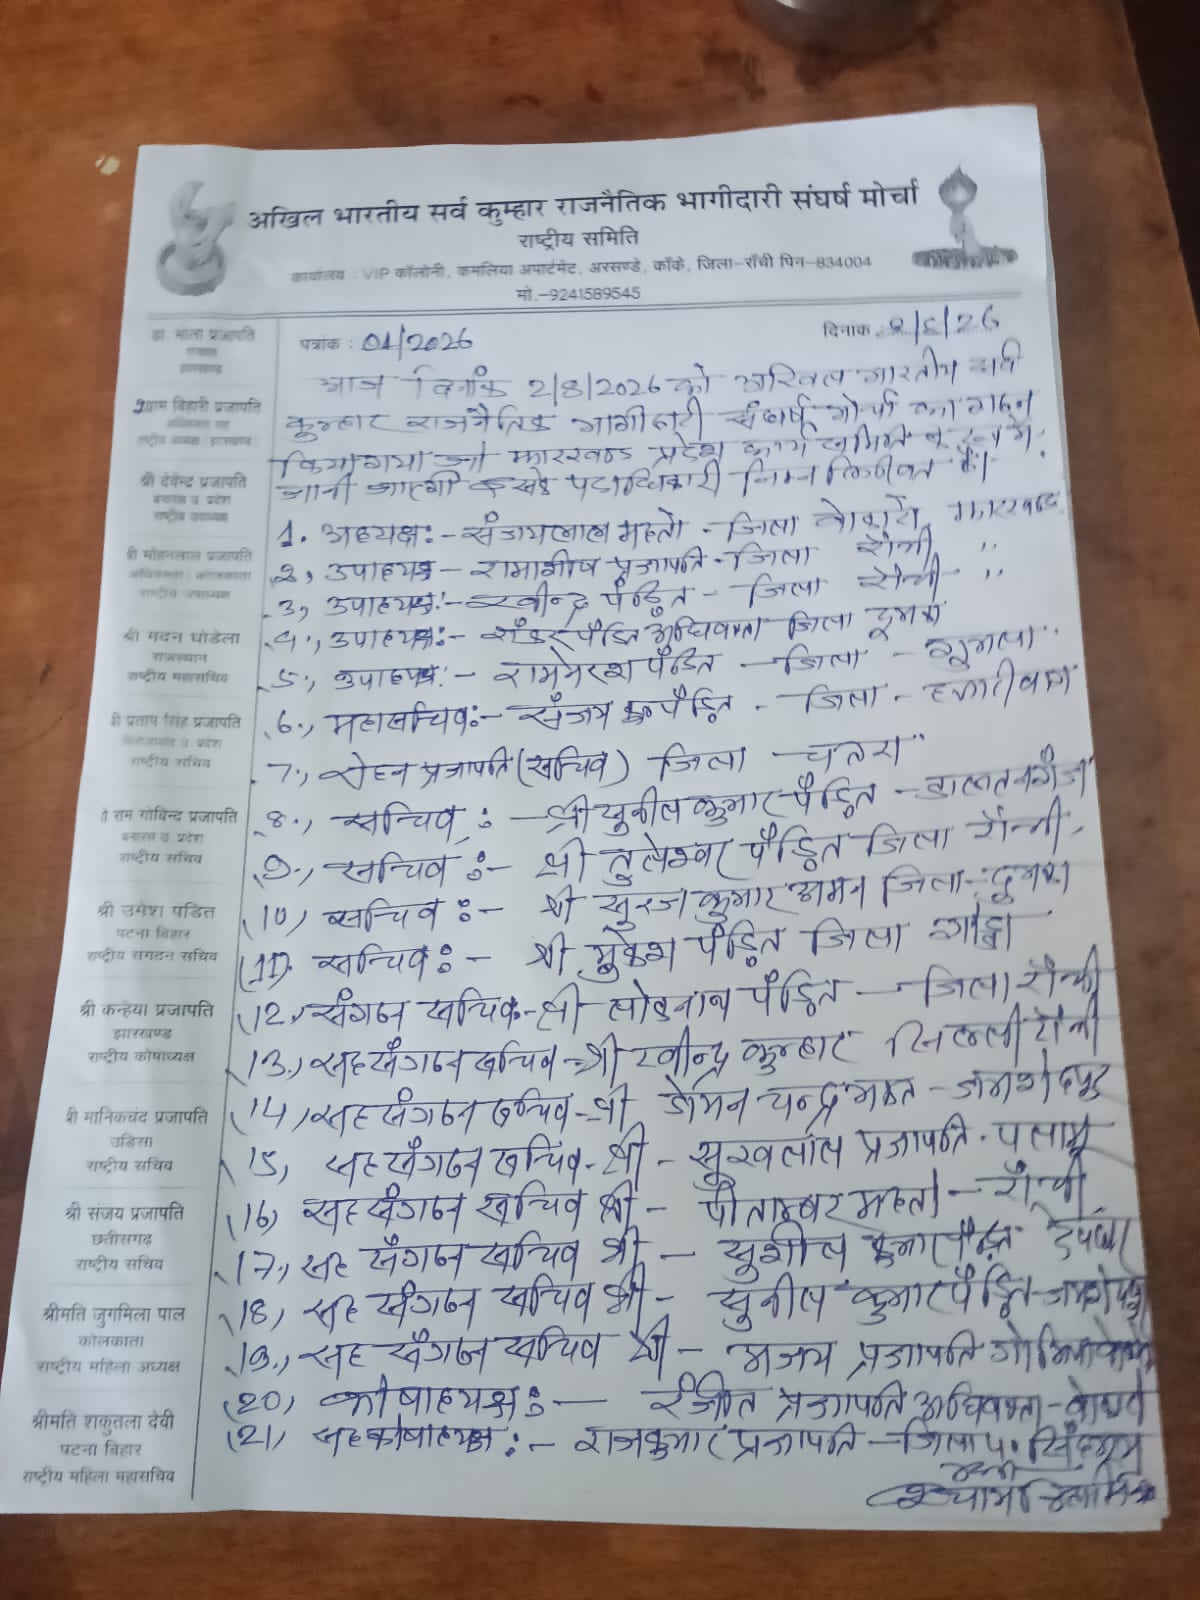 अखिल भारतीय सर्व कुम्हार राजनैतिक भागीदारी संघर्ष मोर्चा
राष्ट्रीय समिति
कार्यालय : VIP कॉलोनी, कमलिया अपार्टमेंट, अरसण्डे, काँके, जिला-राँची पिन-834004
मो.-9241589545
पत्रांक : 01/2026
दिनांक :
आज दिनांक 2/8/2026 को अखिल भारतीय सर्व
कुम्हार राजनैतिक भागीदारी संघर्ष मोर्चा का गठन
किया गया जो झारखण्ड प्रदेश कार्य समिति के रूप में
जानी जाएगी पदाधिकारी निम्न लिखित है।
1. अध्यक्ष:- संजयलाल महतो - जिला बोकारो झारखण्ड
2, उपाध्यक्ष - रामाशीष प्रजापति - जिला राँची "
3, उपाध्यक्ष:- रवीन्द्र पंडित - जिला राँची "
4, उपाध्यक्ष:- शंकर पंडित अधिवक्ता जिला दुमका
5, उपाध्यक्ष:- पंडित - जिला - गुमला
6, महासचिव:- संजय पंडित - जिला - हजारीबाग
7, सोहन प्रजापति (सचिव) जिला - चतरा
8, सचिव : - श्री सुनील कुमार पंडित - डालतनगंज
9, सचिव :- श्री तुलेश्वर पंडित जिला राँची
10, सचिव :- श्री सुरज कुमार अमन जिला - दुमका
11, सचिव :- श्री मुकेश पंडित जिला गोड्डा
12, संगठन सचिव - श्री पंडित - जिला राँची
13, सह संगठन सचिव - श्री रवीन्द्र कुम्हार सिल्ली राँची
14, सह संगठन सचिव - श्री डोमन चन्द्र भक्त - जमशेदपुर
15, सह संगठन सचिव - श्री - सुखलाल प्रजापति - पलामू
16, सह संगठन सचिव श्री - पीताम्बर महतो - राँची
17, सह संगठन सचिव श्री - सुशील कुमार पंडित देवघर
18, सह संगठन सचिव श्री - सुनील कुमार पंडित - जमशेदपुर
19, सह संगठन सचिव श्री - अजय प्रजापति गोमिया बोकारो
20, कोषाध्यक्ष :- रंजीत प्रजापति अधिवक्ता - बोकारो
21, सह कोषाध्यक्ष :- राजकुमार प्रजापति - जिला प. सिंहभूम
डा. माला प्रजापति
झारखण्ड
श्याम बिहारी प्रजापति
राष्ट्रीय अध्यक्ष झारखण्ड
श्री देवेन्द्र प्रजापति
राष्ट्रीय उपाध्यक्ष
श्री मोहनलाल प्रजापति
राष्ट्रीय उपाध्यक्ष
श्री मदन घोडेला
राजस्थान
राष्ट्रीय महासचिव
श्री प्रताप सिंह प्रजापति
राष्ट्रीय सचिव
श्री राम गोबिन्द प्रजापति
बनारस उ. प्रदेश
राष्ट्रीय सचिव
श्री उमेश पंडित
पटना बिहार
राष्ट्रीय संगठन सचिव
श्री कन्हैया प्रजापति
झारखण्ड
राष्ट्रीय कोषाध्यक्ष
श्री मानिकचंद प्रजापति
उडिसा
राष्ट्रीय सचिव
श्री संजय प्रजापति
छत्तीसगढ़
राष्ट्रीय सचिव
श्रीमति जुगमिला पाल
कोलकाता
राष्ट्रीय महिला अध्यक्ष
श्रीमति शकुतला देवी
पटना बिहार
राष्ट्रीय महिला महासचिव